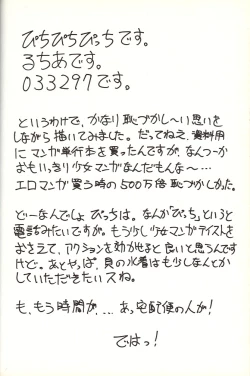 ぴちぴちぴっちです。
るちあです。
033297です。
というわけで、かなり恥づかし〜い思いを
しながら描いてみました。だってねえ、資料用
にマンガ単行本を買ったんですが、なんつーか
おもいっきり少女マンガなんだもんな〜…
エロマンガ買う時の500万倍恥づかしかった。
どーなんでしょ ぴっちは。なんか「ぴっち」というと
電話みたいですが。もう少し少女マンガテイストを
おさえて、アクションを効かせると良いと思うんです
けど。あとやっぱ、貝の水着はも少しなんとか
していただきたいスね。
も、もう時間が… あっ宅配便の人が!
ではっ!